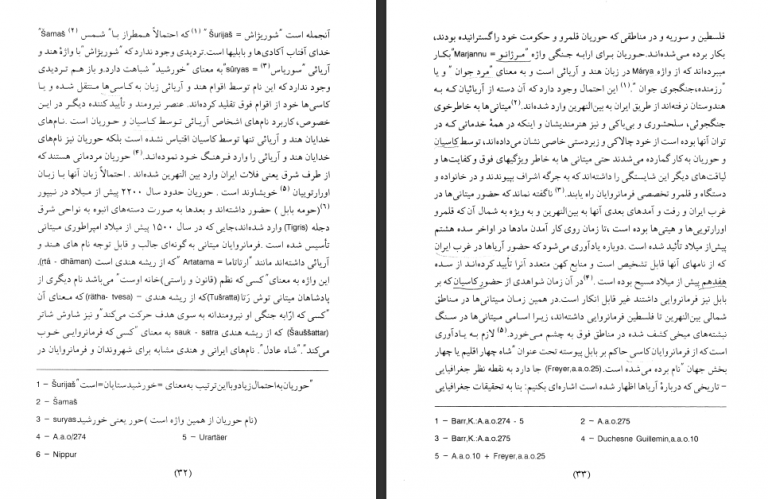 آنجمله است "شوریژاش = Šurijaš" (۱) که احتمالاً همطراز بـا" شمـس (۲) Šamaš"
خدای آفتاب آکادی‌ها و بابلیها است.تردیدی وجود ندارد که "شوریژاش"با واژهٔ هند و
آریائی "سوریاس(۳) = sûryas"به معنای "خورشید" شباهت دارد.و باز هـم تردیدی
وجود ندارد که این نام توسط اقوام هند و آریائی زبان به کاسی‌ها منتقل شده و یـا
کاسی‌ها خود از اقوام فوق تقلید کرده‌اند. عنصر نیرومند و تأیید کننده دیگـر در ایـن
خصوص، کاربرد نام‌های اشخاص آریائی توسـط کاسیـان و حوریـان است .نـام‌های
خدایان هند و آریائی تنها توسط کاسیان اقتباس نشده است بلکه حوریان نیز نام‌های
هند و آریائی را وارد فرهنـگ خـود نموده‌اند.(۴) حوریان مردمانی هستند که
از طرف شرق یعنی فلات ایران وارد بین النهرین شده‌اند . احتمالاً زبان آنها بـا زبـان
اورارتوییان (۵) خویشاوند است . حوریان حدود سال ۲۲۰۰ پیش از میلاد در نیپور
(۶)(حومه بابل ) حضور داشته‌اند و بعدها به صورت دسته‌های انبوه به نواحی شرق
دجله (Tigris) وارد شده‌اند،جایی که در سال ۱۵۰۰ پیش از میلاد امپراطوری میتانی
تأسیس شده است .فرمانروایان میتانی به گونه‌ای جالب و قابل توجه نام های هنـد و
آریائی داشته‌اند مانند "ارتاتاما = Artatama "که از ریشه هندی است (ṛtá - dhāman).
این واژه به معنای "کسی که نظم (قانون و راستی)خانه اوست" می‌باشد نام دیگری از
پادشاهان میتانی توش رَتا(Tušratta)که از ریشه هندی – (rátha- tvesa )که معنای آن
"کسی که ارّابه جنگی او نیرومندانه به سوی هدف حرکت می‌کند"و نیز شاوش شاتر
(Šauššattar) که از ریشه هندی sauk - satra به معنای "کسی که فرمانروایـی خـوب
می‌کند"،"شاه عادل". نام‌های ایرانی و هندی مشابه برای شهروندان و فرمانروایان در
1 – Šurijaš"حوریان‌به‌احتمال‌زیادو‌بااین‌ترتیب به‌معنای =خورشیدستایان=است"
2 – Šamaš
3 – suryas(نام حوریان از همین واژه است )حور یعنی خورشید
4 – A.a.o/274
5 – Urartäer
6 – Nippur
(۳۲)
فلسطین و سوریه و در مناطقی که حوریان قلمرو و حکومت خود را گسترانیده بودند،
بکار برده می‌شده‌انـد.حوریان برای ارابه جنگی واژه "مرژانو = Marjannu"بکـار
میبرده‌اند که از واژه Márya در زبان هند و آریائی است و به معنای "مرد جوان " و یا
"رزمنده،جنگجوی جوان ".(۱) این احتمال وجود دارد که آن دسته از آریائیان کـه به
هندوستان نرفته‌اند از طریق ایران به بین‌النهرین وارد شده‌اند.(۲)میتانی‌ها به خاطرخوی
جنگجوئی، سلحشوری و بی‌باکی و نیز هنرمندیشان و اینکه در همهٔ خدماتـی کـه در
توان آنها بوده است از خود چالاکی و زبردستی خاصی نشان می‌داده‌اند، توسط کاسیان
و حوریان به کار گمارده می‌شدند حتی میتانی ها به خاطر ویژگیهای فوق وکفایت‌ها و
لیاقت‌های دیگر این شایستگی را داشته‌اند که به جرگه اشراف بپیوندند و در خانواده و
دستگاه و قلمرو تخصصی فرمانروایان راه یابند.(۳) ناگفته نماند که حضور میتانی‌هـا در
غرب ایران و رفت و آمدهای بعدی آنها به بین‌النهرین و به ویژه به شمال آن که قلمرو
اورارتویی‌ها و هیتی‌ها بوده است ،تا زمان روی کار آمدن مادها در اواخر سده هشتم
پیش‌از میلاد تأئید شده است .دوباره یادآوری می‌شود که حضور آریاها در غرب ایران
که از نامهای آنها قابل تشخیص است و منابع کهن متعدد آنرا تأیید کرده‌انـد از سـده
هفدهم پیش از میلاد مسیح بوده است .(۴)در آن زمان شواهدی از حضورکاسیان که بر
بابل نیز فرمانروایی داشتند غیر قابل انکار است.در همین زمـان میتانی‌هـا در مناطـق
شمالی بین‌النهرین تا فلسطین فرمانروایی داشته‌اند، زیـرا اسامـی میتانی‌هـا در سنـگ
نبشته‌های میخی کشف شده در مناطق فوق به چشـم مـی‌خورد.(۵) لازم بـه یـادآوری
است‌که از فرمانروایان کاسی حاکم بر بابل پیوسته تحت عنوان "شاه چهار اقلیم یا چهار
بخش جهان "نام برده می‌شده است.(Freyer,a.a.o.25) جا دارد به نقطه نظر جغرافیایی
– تاریخی که دربارهٔ آریاها اظهار شده است اشاره‌ای بکنیم: بنا به تحقیقات جغرافیایی
1 – Barr,K.:A.a.o.274 - 5
2 – A.a.o.275
3 – Barr,K.:A.a.o.275
4 – Duchesne Guillemin,a.a.o.10
5 – A.a.o.10 + Freyer,a.a.o.25
(۳۳)